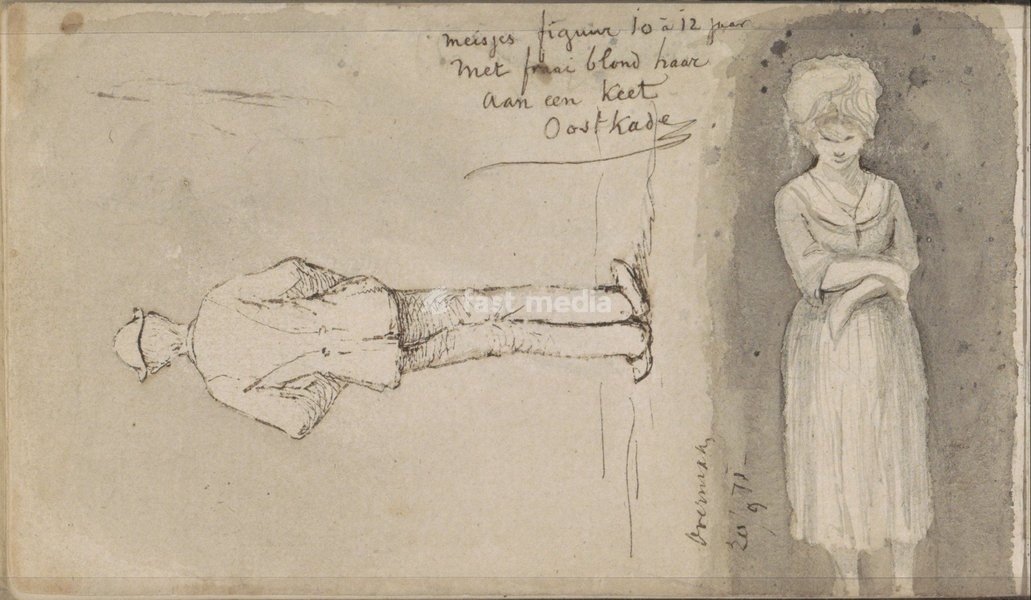 meisjes figuur 10 à 12 jaar
Met fraai blond haar
Aan een Keet
Oostkade
fast media
Overmaas
20 9 71